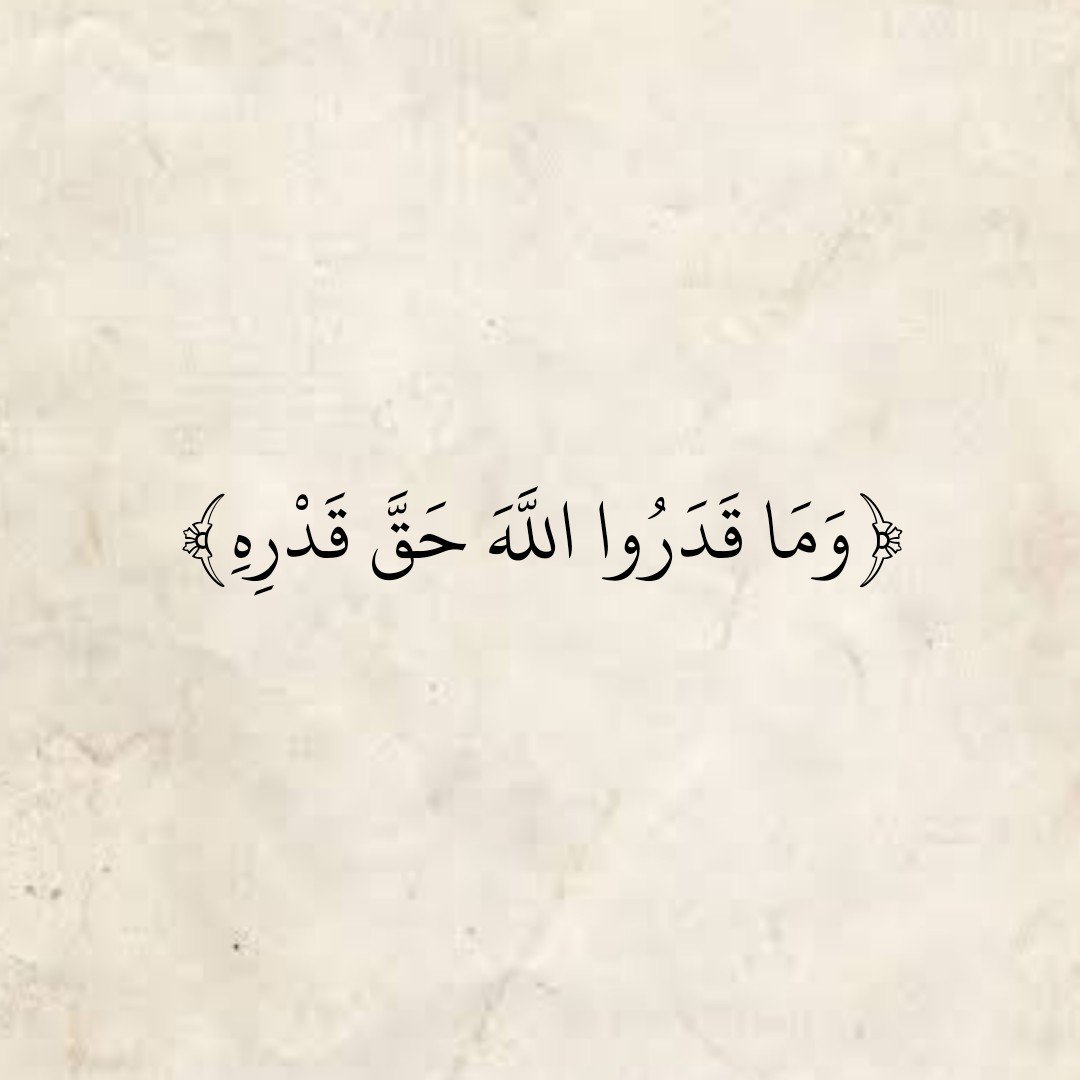 ﴿وَمَا قَدَرُوا اللَّهَ حَقَّ قَدْرِهِ﴾